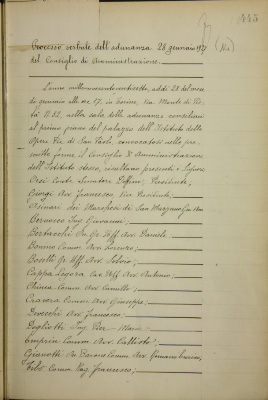 445
Processo verbale dell'adunanza 28 gennaio 1927
del Consiglio di Amministrazione.
L'anno millenovecentoventisette, addì 28 del mese
di gennaio alle ore 17, in Torino, Via Monte di Pie-
tà N. 32, nella sala delle adunanze consiliari
al primo piano del palazzo dell'Istituto delle
Opere Pie di San Paolo, convocatosi nelle pre-
scritte forme il Consiglio d'Amministrazione
dell'Istituto stesso, risultano presenti i Signori
Orsi Conte Senatore Delfino, Presidente,
Giorgi Av. Francesco Vice Presidente,
Asinari dei Marchesi di San Marzano
Bernocco Ing. Giovanni,
Bertacchi Gr. Uff. Avv. Daniele
Bonino Comm. Avv. Lorenzo
Boselli Gr. Uff. Avv. Silvio
Cappa Legora Cav. Uff. Avv. Antonio,
Chiesa Comm. Avv. Camillo,
Cravera Comm. Avv. Giuseppe
Avv. Francesco
Fogliotti Ing. Pier Maria
Emprin Comm. Avv. Callisto
Gianotti Barone Comm. Avv. Romano
Comm. Rag. Francesco,